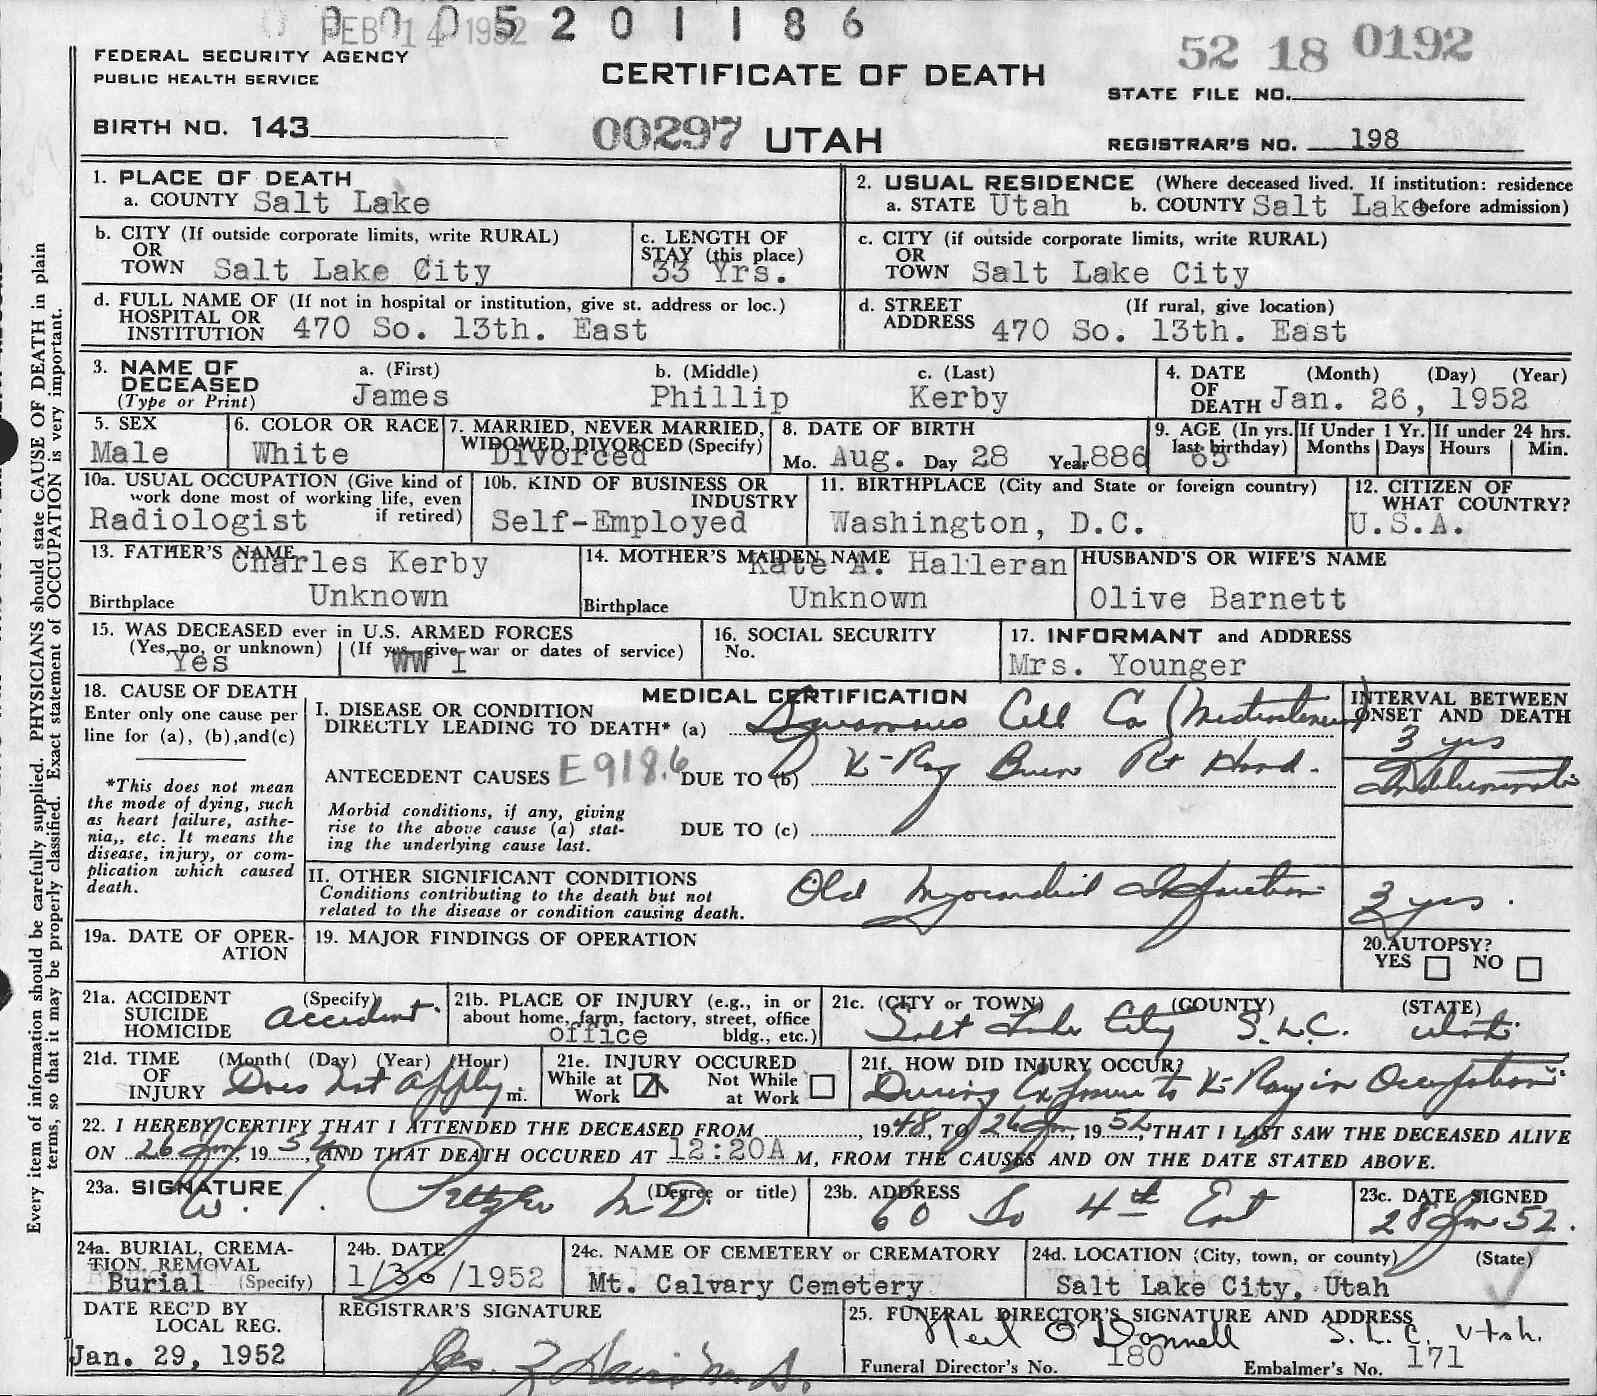 FEB 14 1952
0005201186
52 18 0192
FEDERAL SECURITY AGENCY
PUBLIC HEALTH SERVICE
CERTIFICATE OF DEATH
STATE FILE NO.
BIRTH NO. 143
00297 UTAH
REGISTRAR'S NO. 198
1. PLACE OF DEATH
a. COUNTY Salt Lake
2. USUAL RESIDENCE (Where deceased lived. If institution: residence
a. STATE Utah b. COUNTY Salt Lake before admission)
b. CITY (If outside corporate limits, write RURAL)
OR
TOWN Salt Lake City
c. LENGTH OF
STAY (this place)
33 Yrs.
c. CITY (if outside corporate limits, write RURAL)
OR
TOWN Salt Lake City
d. FULL NAME OF (If not in hospital or institution, give st. address or loc.)
HOSPITAL OR
INSTITUTION 470 So. 13th. East
d. STREET (If rural, give location)
ADDRESS 470 So. 13th. East
3. NAME OF
DECEASED
(Type or Print)
a. (First)
James
b. (Middle)
Phillip
c. (Last)
Kerby
4. DATE (Month) (Day) (Year)
OF
DEATH Jan. 26, 1952
5. SEX
Male
6. COLOR OR RACE
White
7. MARRIED, NEVER MARRIED,
WIDOWED, DIVORCED (Specify)
Divorced
8. DATE OF BIRTH
Mo. Aug. Day 28 Year 1886
9. AGE (In yrs.
last birthday)
65
If Under 1 Yr.
Months Days
If under 24 hrs.
Hours Min.
10a. USUAL OCCUPATION (Give kind of
work done most of working life, even
if retired)
Radiologist
10b. KIND OF BUSINESS OR
INDUSTRY
Self-Employed
11. BIRTHPLACE (City and State or foreign country)
Washington, D.C.
12. CITIZEN OF
WHAT COUNTRY?
U.S.A.
13. FATHER'S NAME
Charles Kerby
Birthplace Unknown
14. MOTHER'S MAIDEN NAME
Kate A. Halleran
Birthplace Unknown
HUSBAND'S OR WIFE'S NAME
Olive Barnett
15. WAS DECEASED ever in U.S. ARMED FORCES
(Yes, no, or unknown) (If yes, give war or dates of service)
Yes WW I
16. SOCIAL SECURITY
No.
17. INFORMANT and ADDRESS
Mrs. Younger
18. CAUSE OF DEATH
Enter only one cause per
line for (a), (b),and(c)
*This does not mean
the mode of dying, such
as heart failure, asthe-
nia,, etc. It means the
disease, injury, or com-
plication which caused
death.
MEDICAL CERTIFICATION
I. DISEASE OR CONDITION
DIRECTLY LEADING TO DEATH* (a) Squamous Cell Ca
INTERVAL BETWEEN
ONSET AND DEATH
3 yrs
ANTECEDENT CAUSES E918.6 DUE TO (b) X-Ray Burn Rt Hand.
Indeterminate
Morbid conditions, if any, giving
rise to the above cause (a) stat-
ing the underlying cause last.
DUE TO (c)
II. OTHER SIGNIFICANT CONDITIONS
Conditions contributing to the death but not
related to the disease or condition causing death.
Old Myocardial Infarction
3 yrs.
19a. DATE OF OPER-
ATION
19. MAJOR FINDINGS OF OPERATION
20. AUTOPSY?
YES NO
21a. ACCIDENT (Specify)
SUICIDE
HOMICIDE
accident.
21b. PLACE OF INJURY (e.g., in or
about home, farm, factory, street, office
bldg., etc.)
office
21c. (CITY or TOWN) (COUNTY) (STATE)
Salt Lake City S.L.C. Utah
21d. TIME (Month( (Day) (Year) (Hour)
OF
INJURY Does not apply m.
21e. INJURY OCCURED
While at Work Not While at Work
21f. HOW DID INJURY OCCUR?
During Exposure to X-Ray in Occupation
22. I HEREBY CERTIFY THAT I ATTENDED THE DECEASED FROM , 1948, TO 26 Jan, 1952, THAT I LAST SAW THE DECEASED ALIVE
ON 26 Jan, 1952, AND THAT DEATH OCCURED AT 12:20A M, FROM THE CAUSES AND ON THE DATE STATED ABOVE.
23a. SIGNATURE (Degree or title)
M.D.
23b. ADDRESS
60 So 4th East
23c. DATE SIGNED
28 Jan 52.
24a. BURIAL, CREMA-
TION, REMOVAL
Burial (Specify)
24b. DATE
1/30/1952
24c. NAME OF CEMETERY or CREMATORY
Mt. Calvary Cemetery
24d. LOCATION (City, town, or county) (State)
Salt Lake City, Utah
DATE REC'D BY
LOCAL REG.
Jan. 29, 1952
REGISTRAR'S SIGNATURE
25. FUNERAL DIRECTOR'S SIGNATURE AND ADDRESS
Neil O'Donnell S.L.C. Utah.
Funeral Director's No. 180 Embalmer's No. 171
Every item of information should be carefully supplied. PHYSICIANS should state CAUSE OF DEATH in plain
terms, so that it may be properly classified. Exact statement of OCCUPATION is very important.